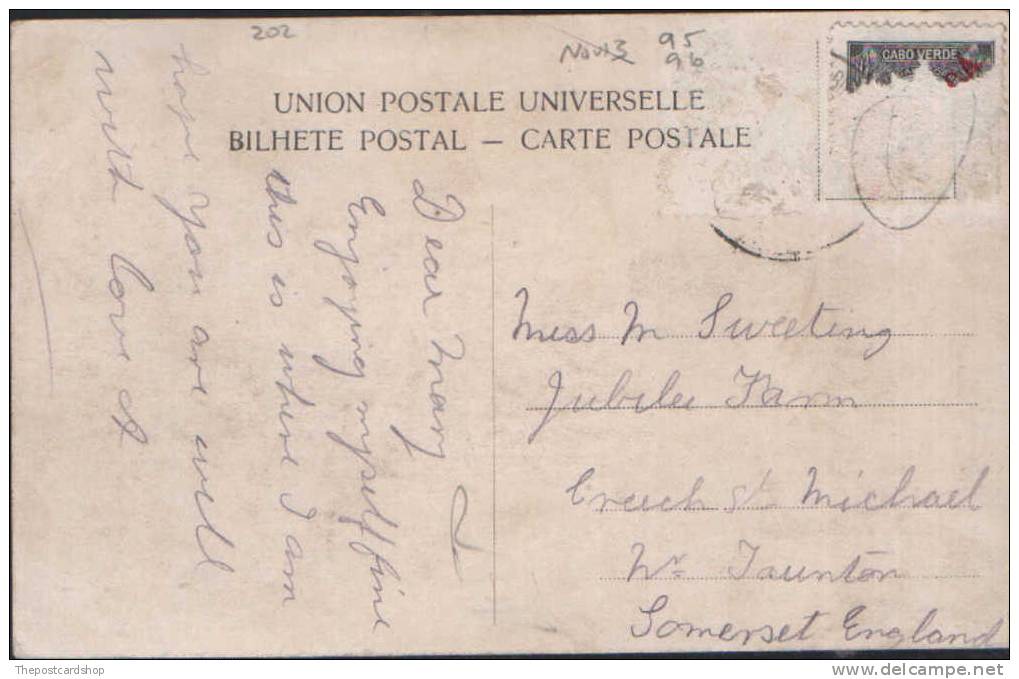 202
95
96
CABO VERDE
UNION POSTALE UNIVERSELLE
BILHETE POSTAL — CARTE POSTALE
Dear Mary
Enjoying myself fine
this is where I am
hope you are well
with love A
Miss M Sweeting
Jubilee Farm
Creech St Michael
Nr Taunton
Somerset England
Thepostcardshop
delcampe.net